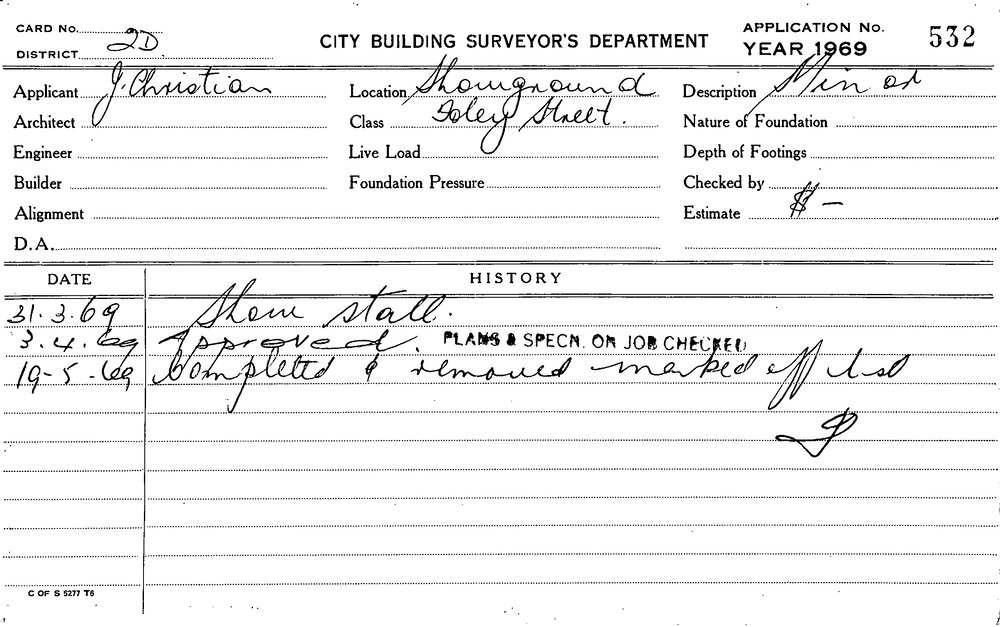 CARD No.
DISTRICT 2D
CITY BUILDING SURVEYOR'S DEPARTMENT
APPLICATION No. 532
YEAR 1969
Applicant J. Christian
Location Showground
Description Minor
Architect
Class Foley Street.
Nature of Foundation
Engineer
Live Load
Depth of Footings
Builder
Foundation Pressure
Checked by
Alignment
Estimate $ —
D.A.
DATE HISTORY
31.3.69 Show stall.
3.4.69 Approved. PLANS & SPECN. ON JOB CHECKED
19-5-69 Completed & removed marked off
C OF S 5277 T6